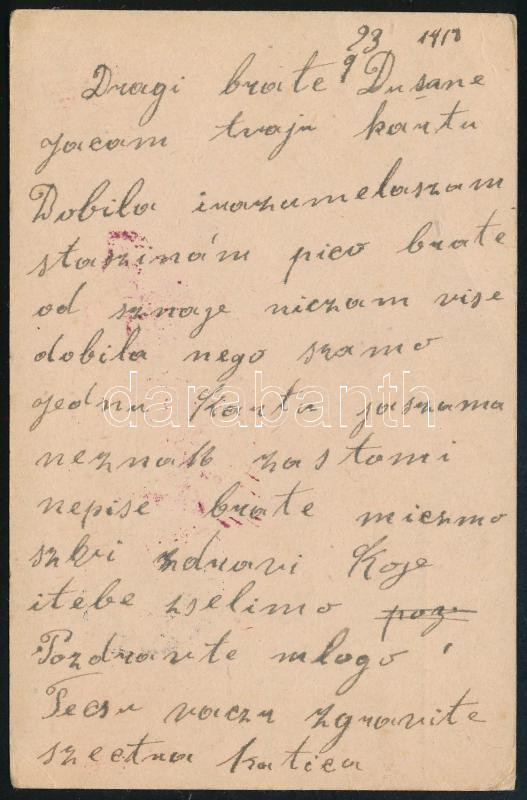 23 1918
9
Dragi brate Dusane
jacam tvaju kartu
Dobila irazumelaszam
staszimám pico brate
od sznaje niczam vise
dobila nego szamo
jednu kartu jaszama
neznam zastomi
nepise brate miczmo
szvi zdravi Koje
itebe zselimo poz
Pozdravte mlogo
Tecsu vaczu zgravite
szectra katica
darabanth